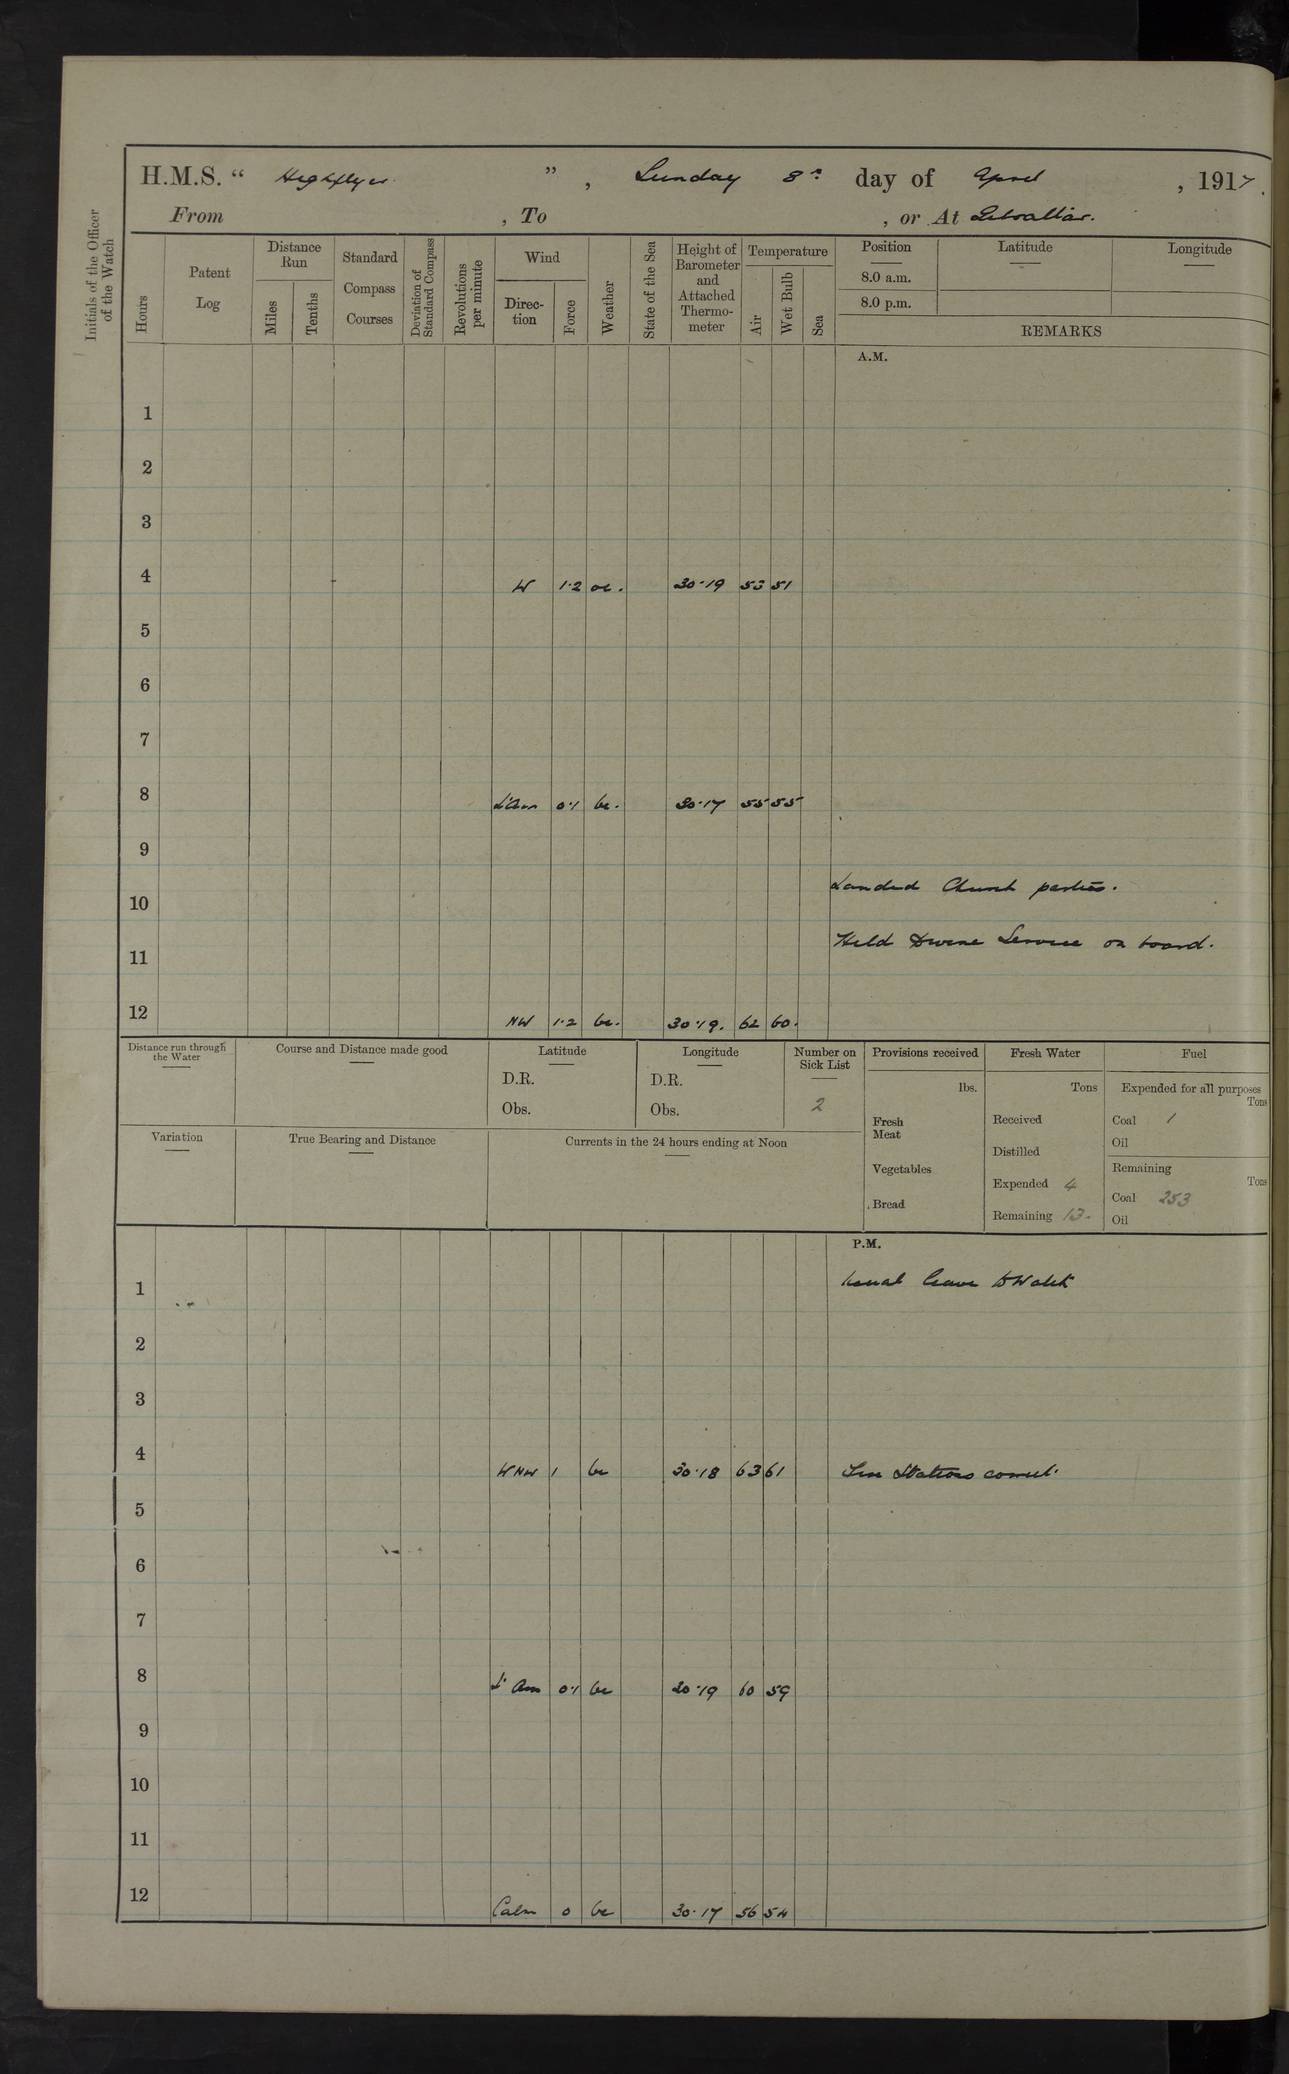 H.M.S. “ Highflyer ” , Sunday 8th day of April , 1917.
From , To , or At Gibraltar.
Initials of the Officer of the Watch
Hours
Patent Log
Distance Run
Miles
Tenths
Standard Compass Courses
Deviation of Standard Compass
Revolutions per minute
Wind
Direction
Force
Weather
State of the Sea
Height of Barometer and Attached Thermometer
Temperature
Air
Wet Bulb
Sea
Position
8.0 a.m.
8.0 p.m.
Latitude
Longitude
REMARKS
A.M.
1
2
3
4 W 1·2 oc. 30·19 53 51
5
6
7
8 L'Airs 0·1 bc. 30·17 55 55
9
Landed Church parties.
10
Held Divine Service on board.
11
12 NW 1·2 bc. 30·19. 62 60.
Distance run through the Water
Course and Distance made good
Latitude
D.R.
Obs.
Longitude
D.R.
Obs.
Number on Sick List
2
Variation
True Bearing and Distance
Currents in the 24 hours ending at Noon
Provisions received
lbs.
Fresh Meat
Vegetables
Bread
Fresh Water
Tons
Received
Distilled
Expended 4
Remaining 13.
Fuel
Expended for all purposes
Tons
Coal 1
Oil
Remaining
Tons
Coal 253
Oil
P.M.
1 Usual leave to Watch
2
3
4 WNW 1 bc 30·18 63 61
5
6
7
8 L' Airs 0·1 bc 30·19 60 59
9
10
11
12 Calm 0 bc 30·17 56 54